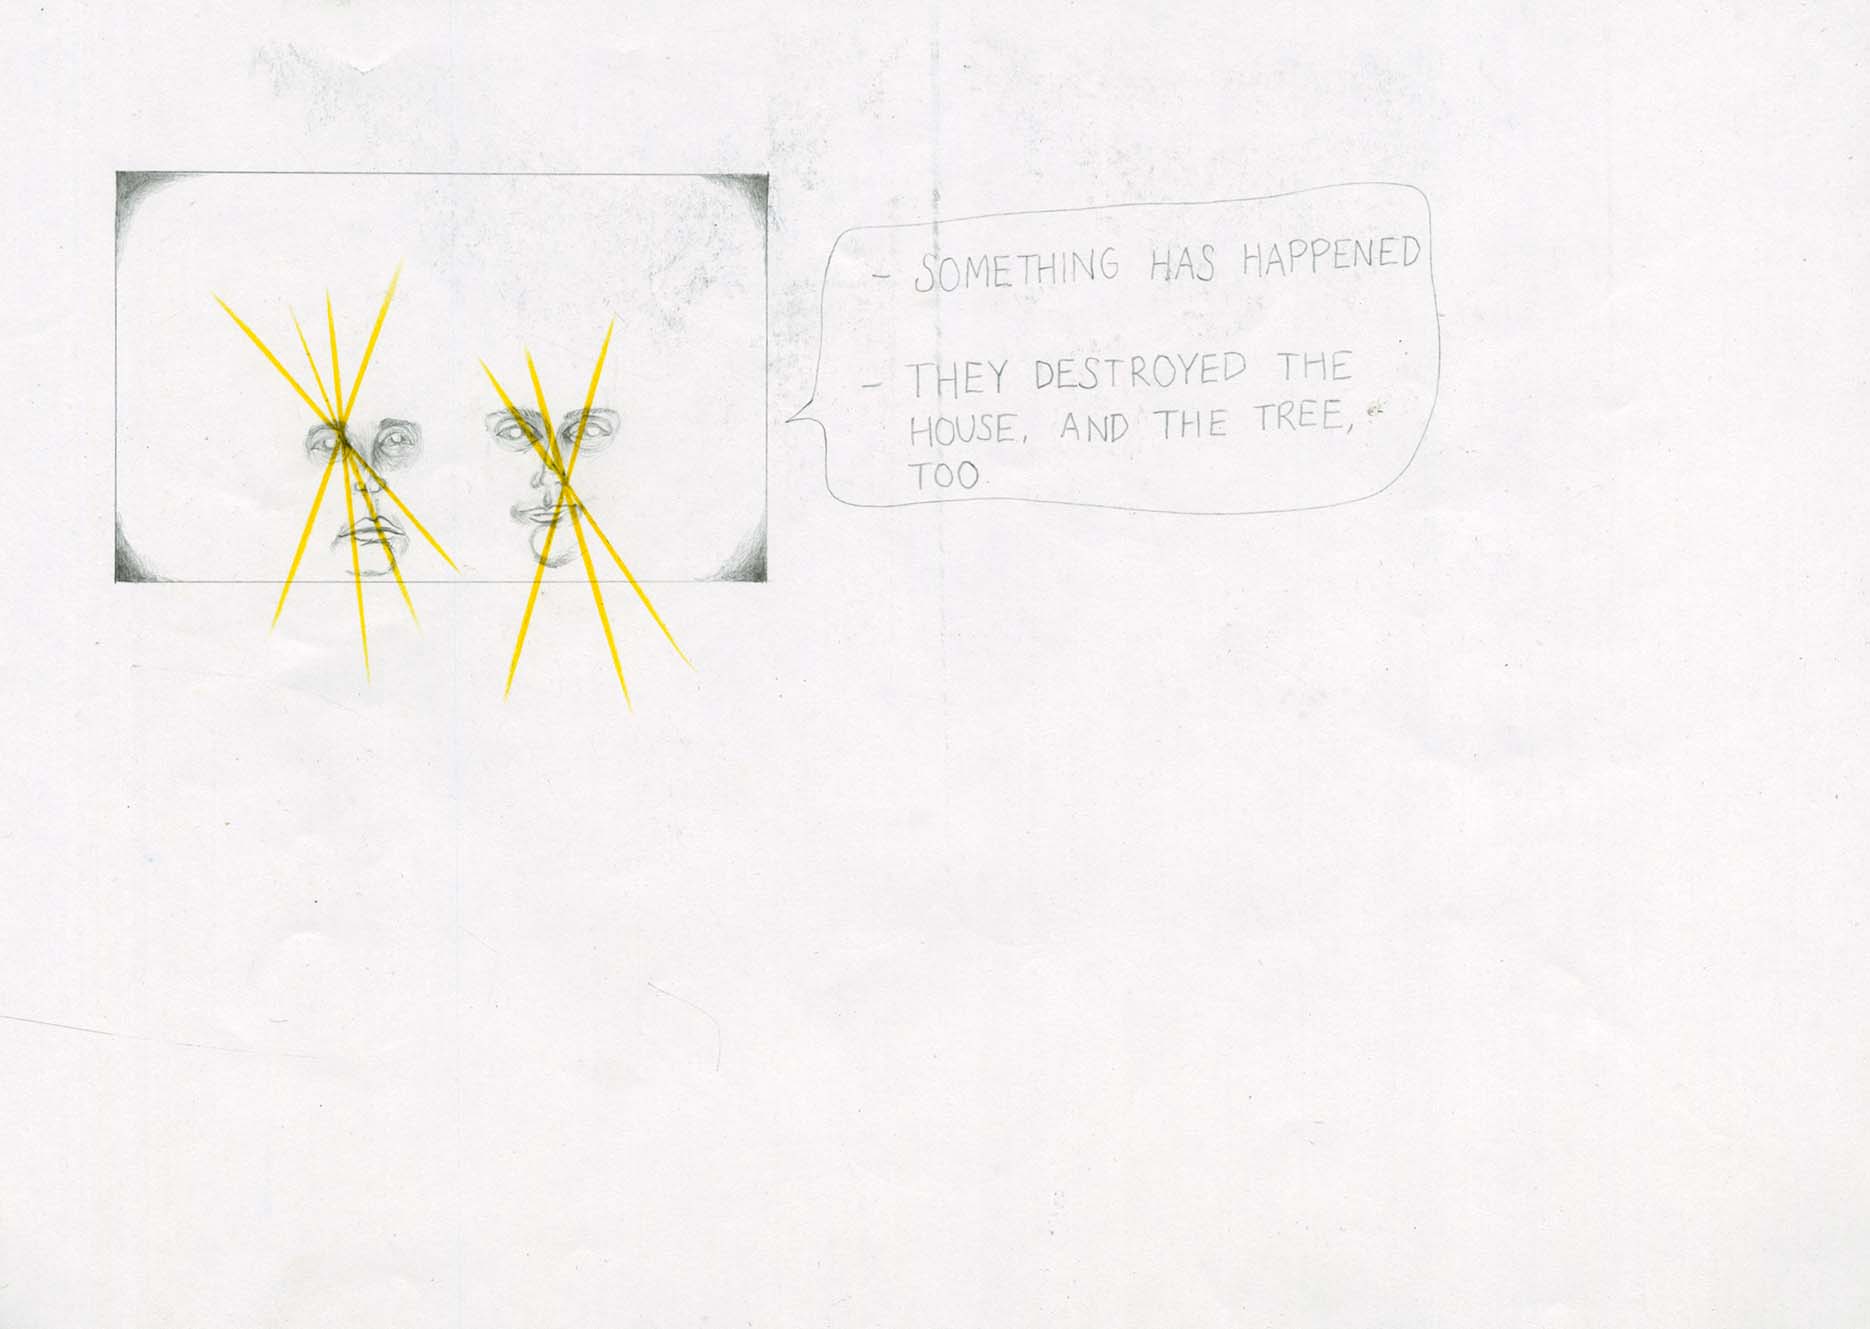 - SOMETHING HAS HAPPENED
- THEY DESTROYED THE
HOUSE, AND THE TREE,
TOO.